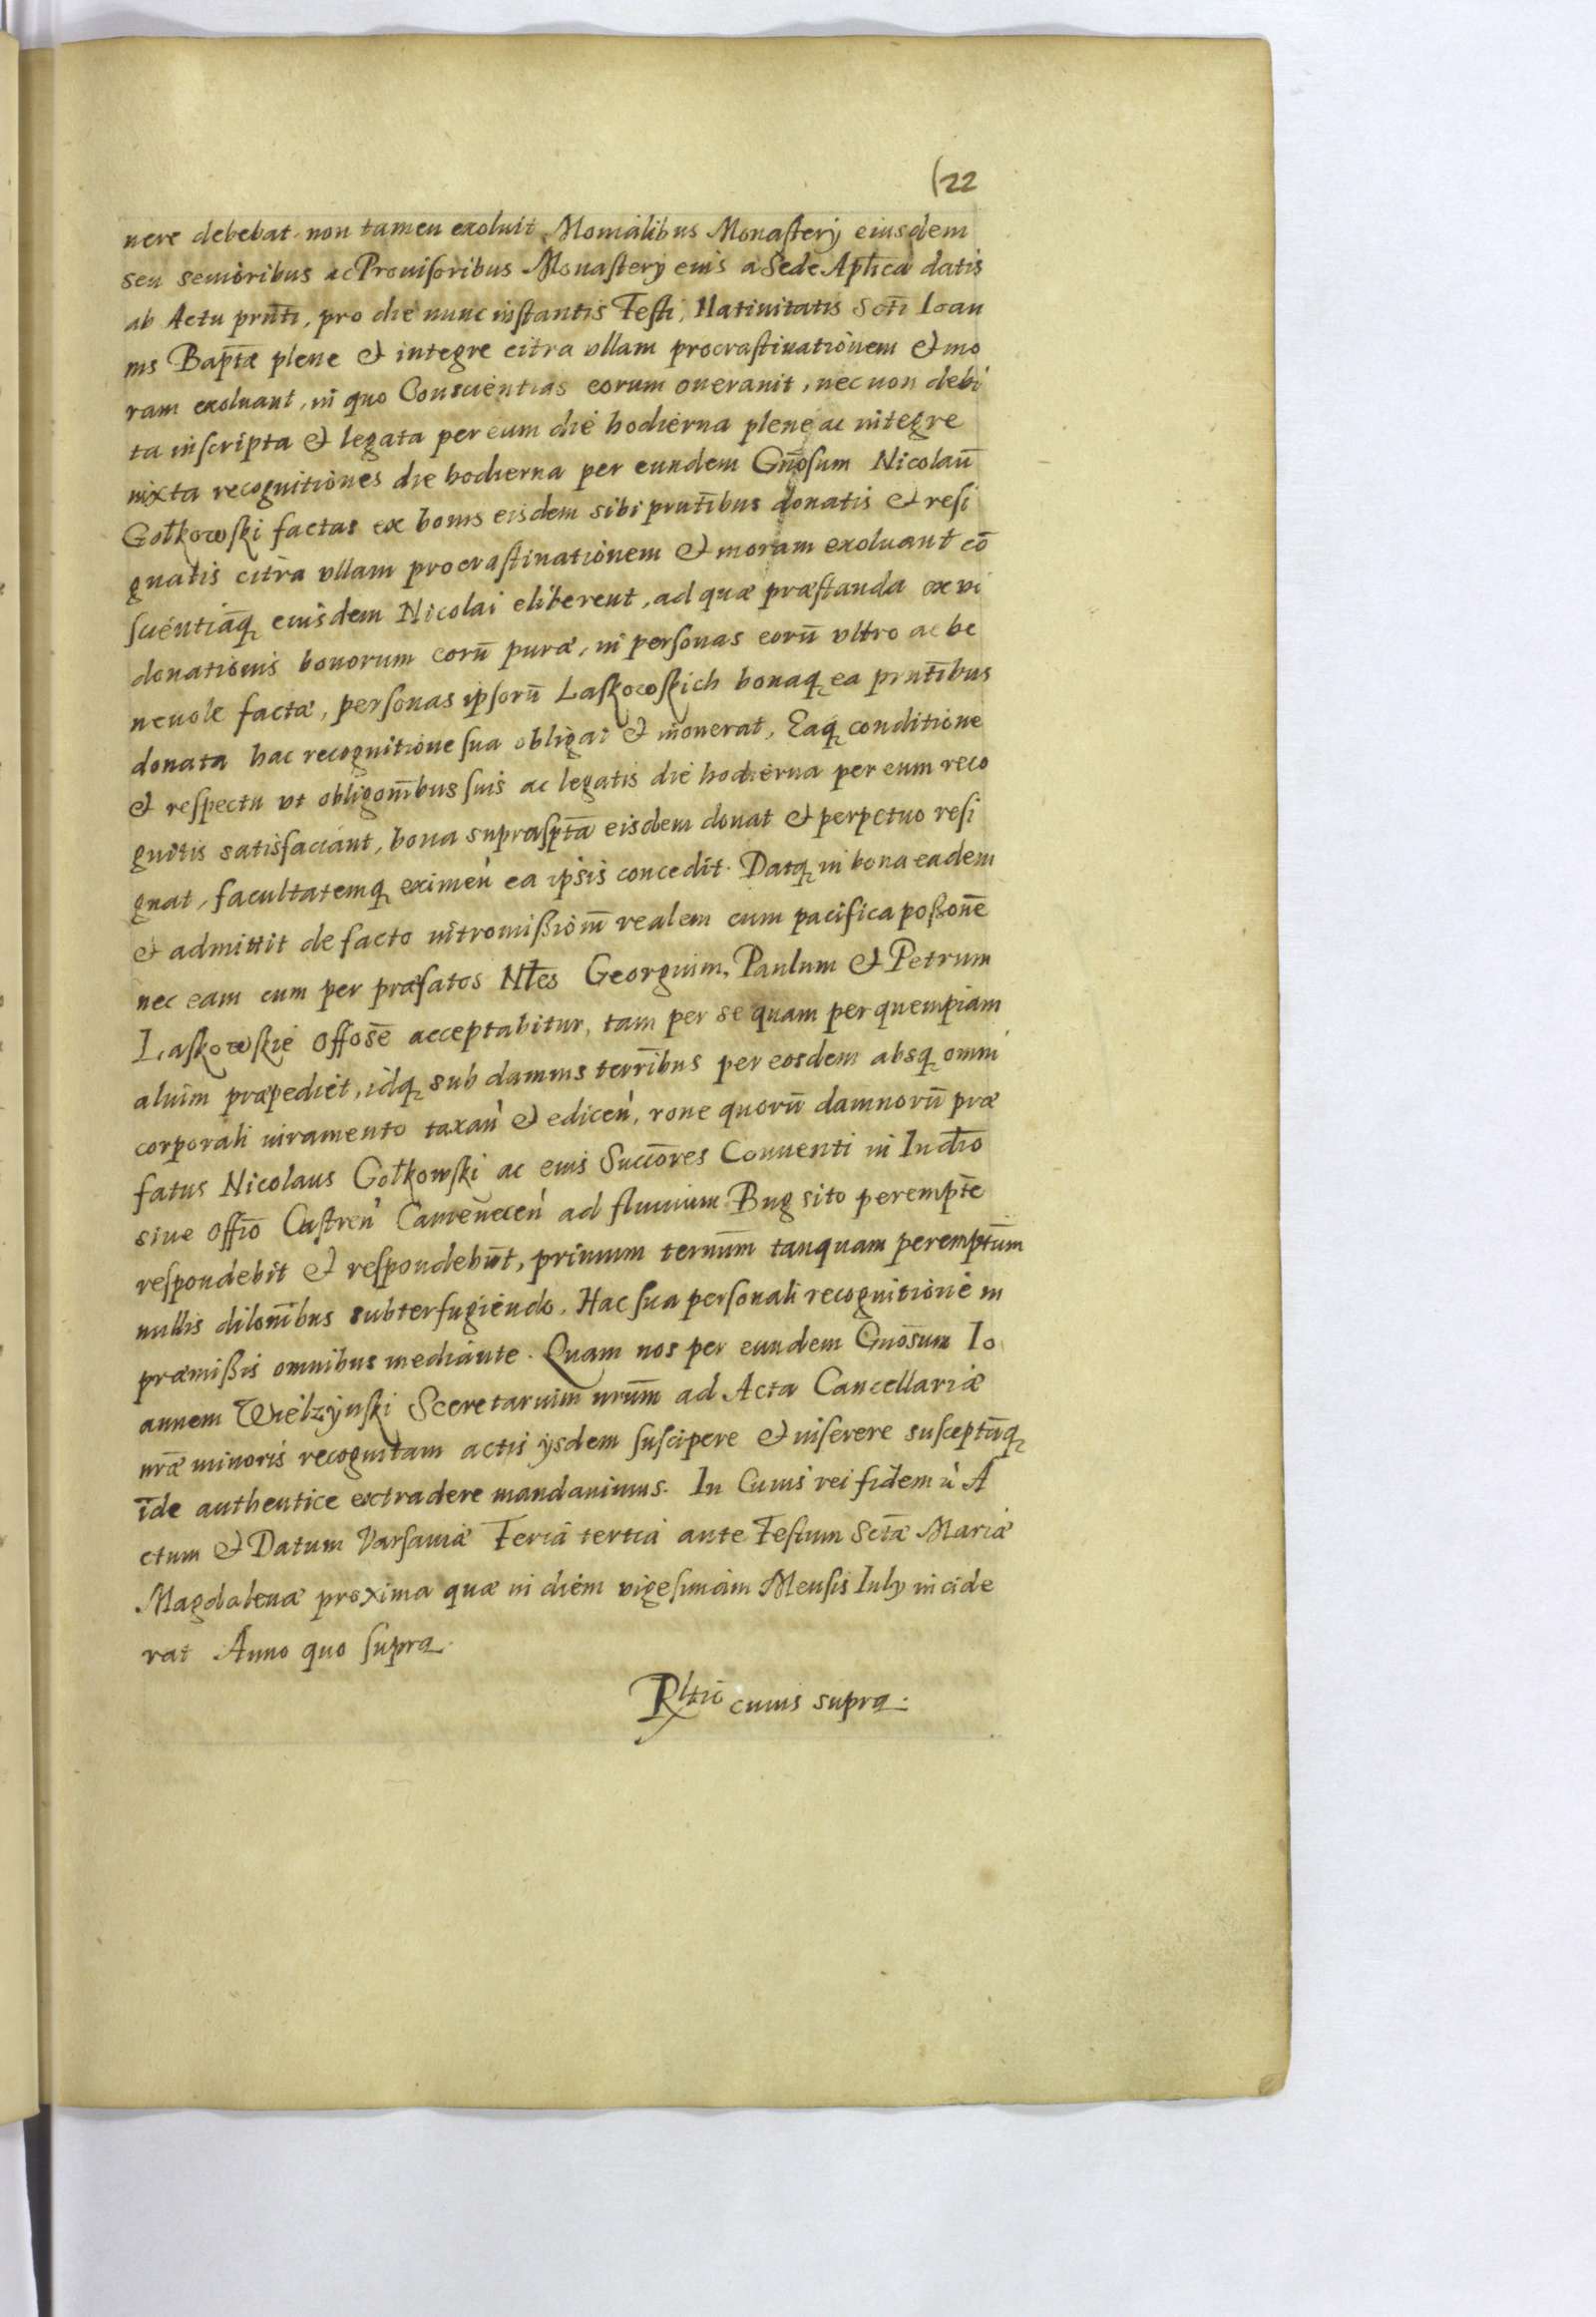 (22
nere debebat non tamen exoluit, Monialibus Monastery eiusdem
seu senioribus ac Prouisoribus Monastery eius a Sede Aplica datis
ab Actu prnti, pro die nunc instantis Festi, Natiuitatis Scti Ioan
nis Baptæ plene et integre citra ullam procrastinationem et mo
ram exoluant, in quo Conscientias eorum onerauit, nec non debi
ta inscripta et legata per eum die hodierna plene ac integre
iuxta recognitiones die hodierna per eundem Gnosum Nicolau̅
Gołkowski factas ex bonis eisdem sibi prntibus donatis et resi
gnatis citra ullam procrastinationem et moram exoluant co̅
scientiamq eiusdem Nicolai eliberent, ad quæ præstanda ex ui
donationis bonorum eoru̅ puræ, in personas eoru̅ ultro ac be
neuole factæ, personas ipsoru̅ Laskowskich bonaq ea prntibus
donata hac recognitione sua obligat et inonerat, Eaq conditione
et respectu ut obligonibus suis ac legatis die hodierna per eum reco
gnitis satisfaciant, bona suprasptа eisdem donat et perpetuo resi
gnat, facultatemq eximen ea ipsis concedit. Datq in bona eadem
et admittit de facto intromissiom realem cum pacifica possone
nec eam cum per præfatos Nles Georgium, Paulum et Petrum
Laskowskie offose acceptabitur, tam per se quam per quempiam
alium præpediet, idq sub damnis terribus per eosdem absq omni
corporali iuramento taxan et edicen, rone quoru̅ damnoru̅ præ
fatus Nicolaus Gołkowski ac eius Succores Conuenti in Iudio
siue offio Castren Camenecen ad fluuium Bug sito perempte
respondebit et respondebunt, primum ternum tanquam peremptum
nullis dilonibus subterfugiendo. Hac sua personali recognitione in
præmissis omnibus mediante. Quam nos per eundem Gnosum Io
annem Wielzynski Secretarium nrum ad Acta Cancellariæ
nræ minoris recognitam actis ysdem suscipere et inserere susceptamq
inde authentice extradere mandauimus. In Cuius rei fidem Ꝛ A
ctum et Datum Varsauiæ Feria tertia ante Festum Sctæ Mariæ
Magdalenæ proxima quæ in diem vigesimam Mensis Iuly incide
rat Anno quo supra.
Rltio cuius supra.